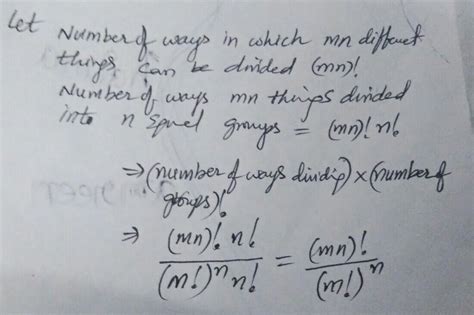 Let Number of ways in which mn different
things can be divided (mn)!
Number of ways mn things divided
into n equal groups = (mn)! n!
⇒ (number of ways dividip) × (number of
groups)!
⇒ (mn)! n! / (m!)^n n! = (mn)! / (m!)^n